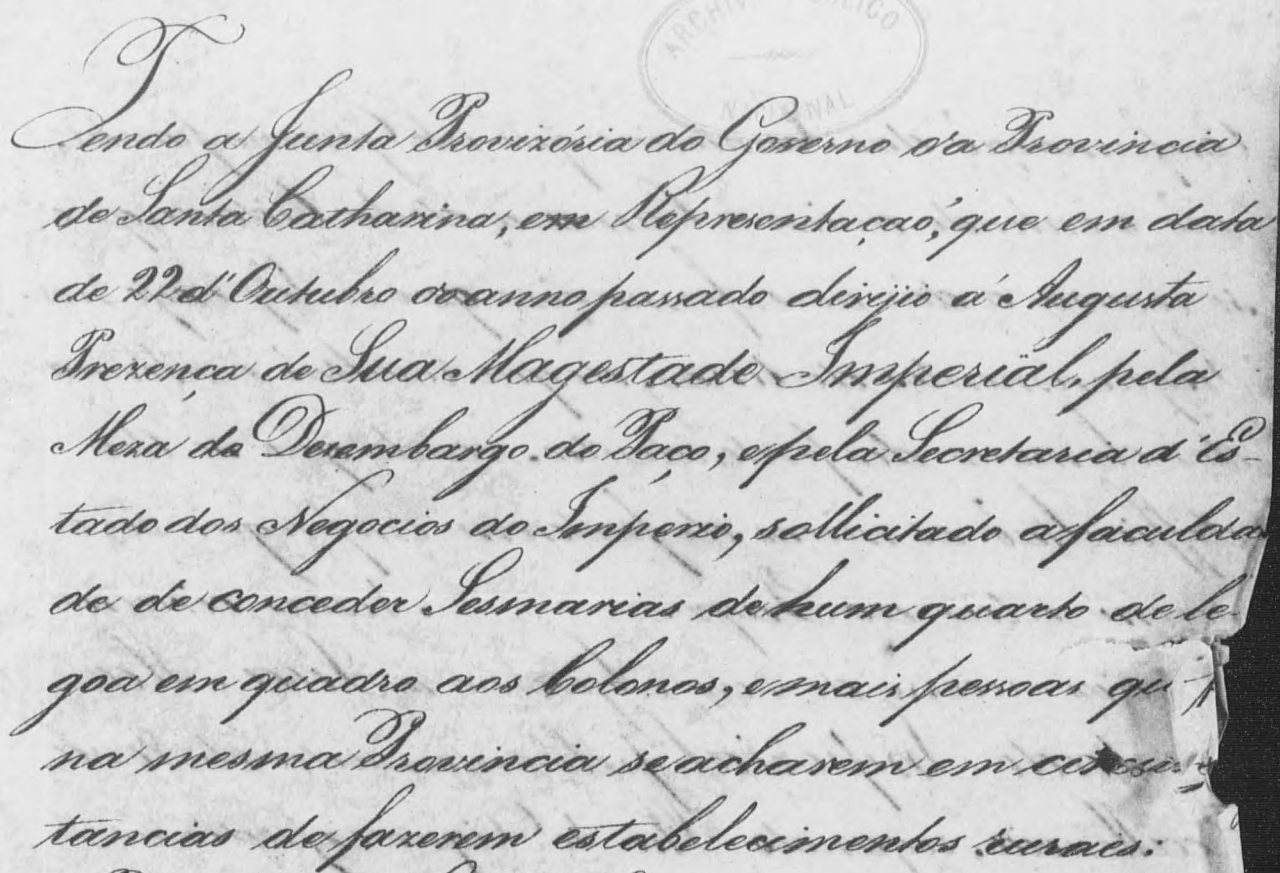 ARCHIVO PUBLICO
NACIONAL
Tendo a Junta Provizória do Governo da Provincia
de Santa Catharina, em Representaçaõ, que em data
de 22 d'Outubro do anno passado dirijio á Augusta
Prezença de Sua Magestade Imperial, pela
Meza do Dezembargo do Paço, e pela Secretaria d'Es-
tado dos Negocios do Imperio, sollicitado a faculda
de de conceder Sesmarias de hum quarto de le-
goa em quadro aos Colonos, e mais pessoas
na mesma Provincia se acharem em
tancias de fazerem estabelecimentos ruraes: